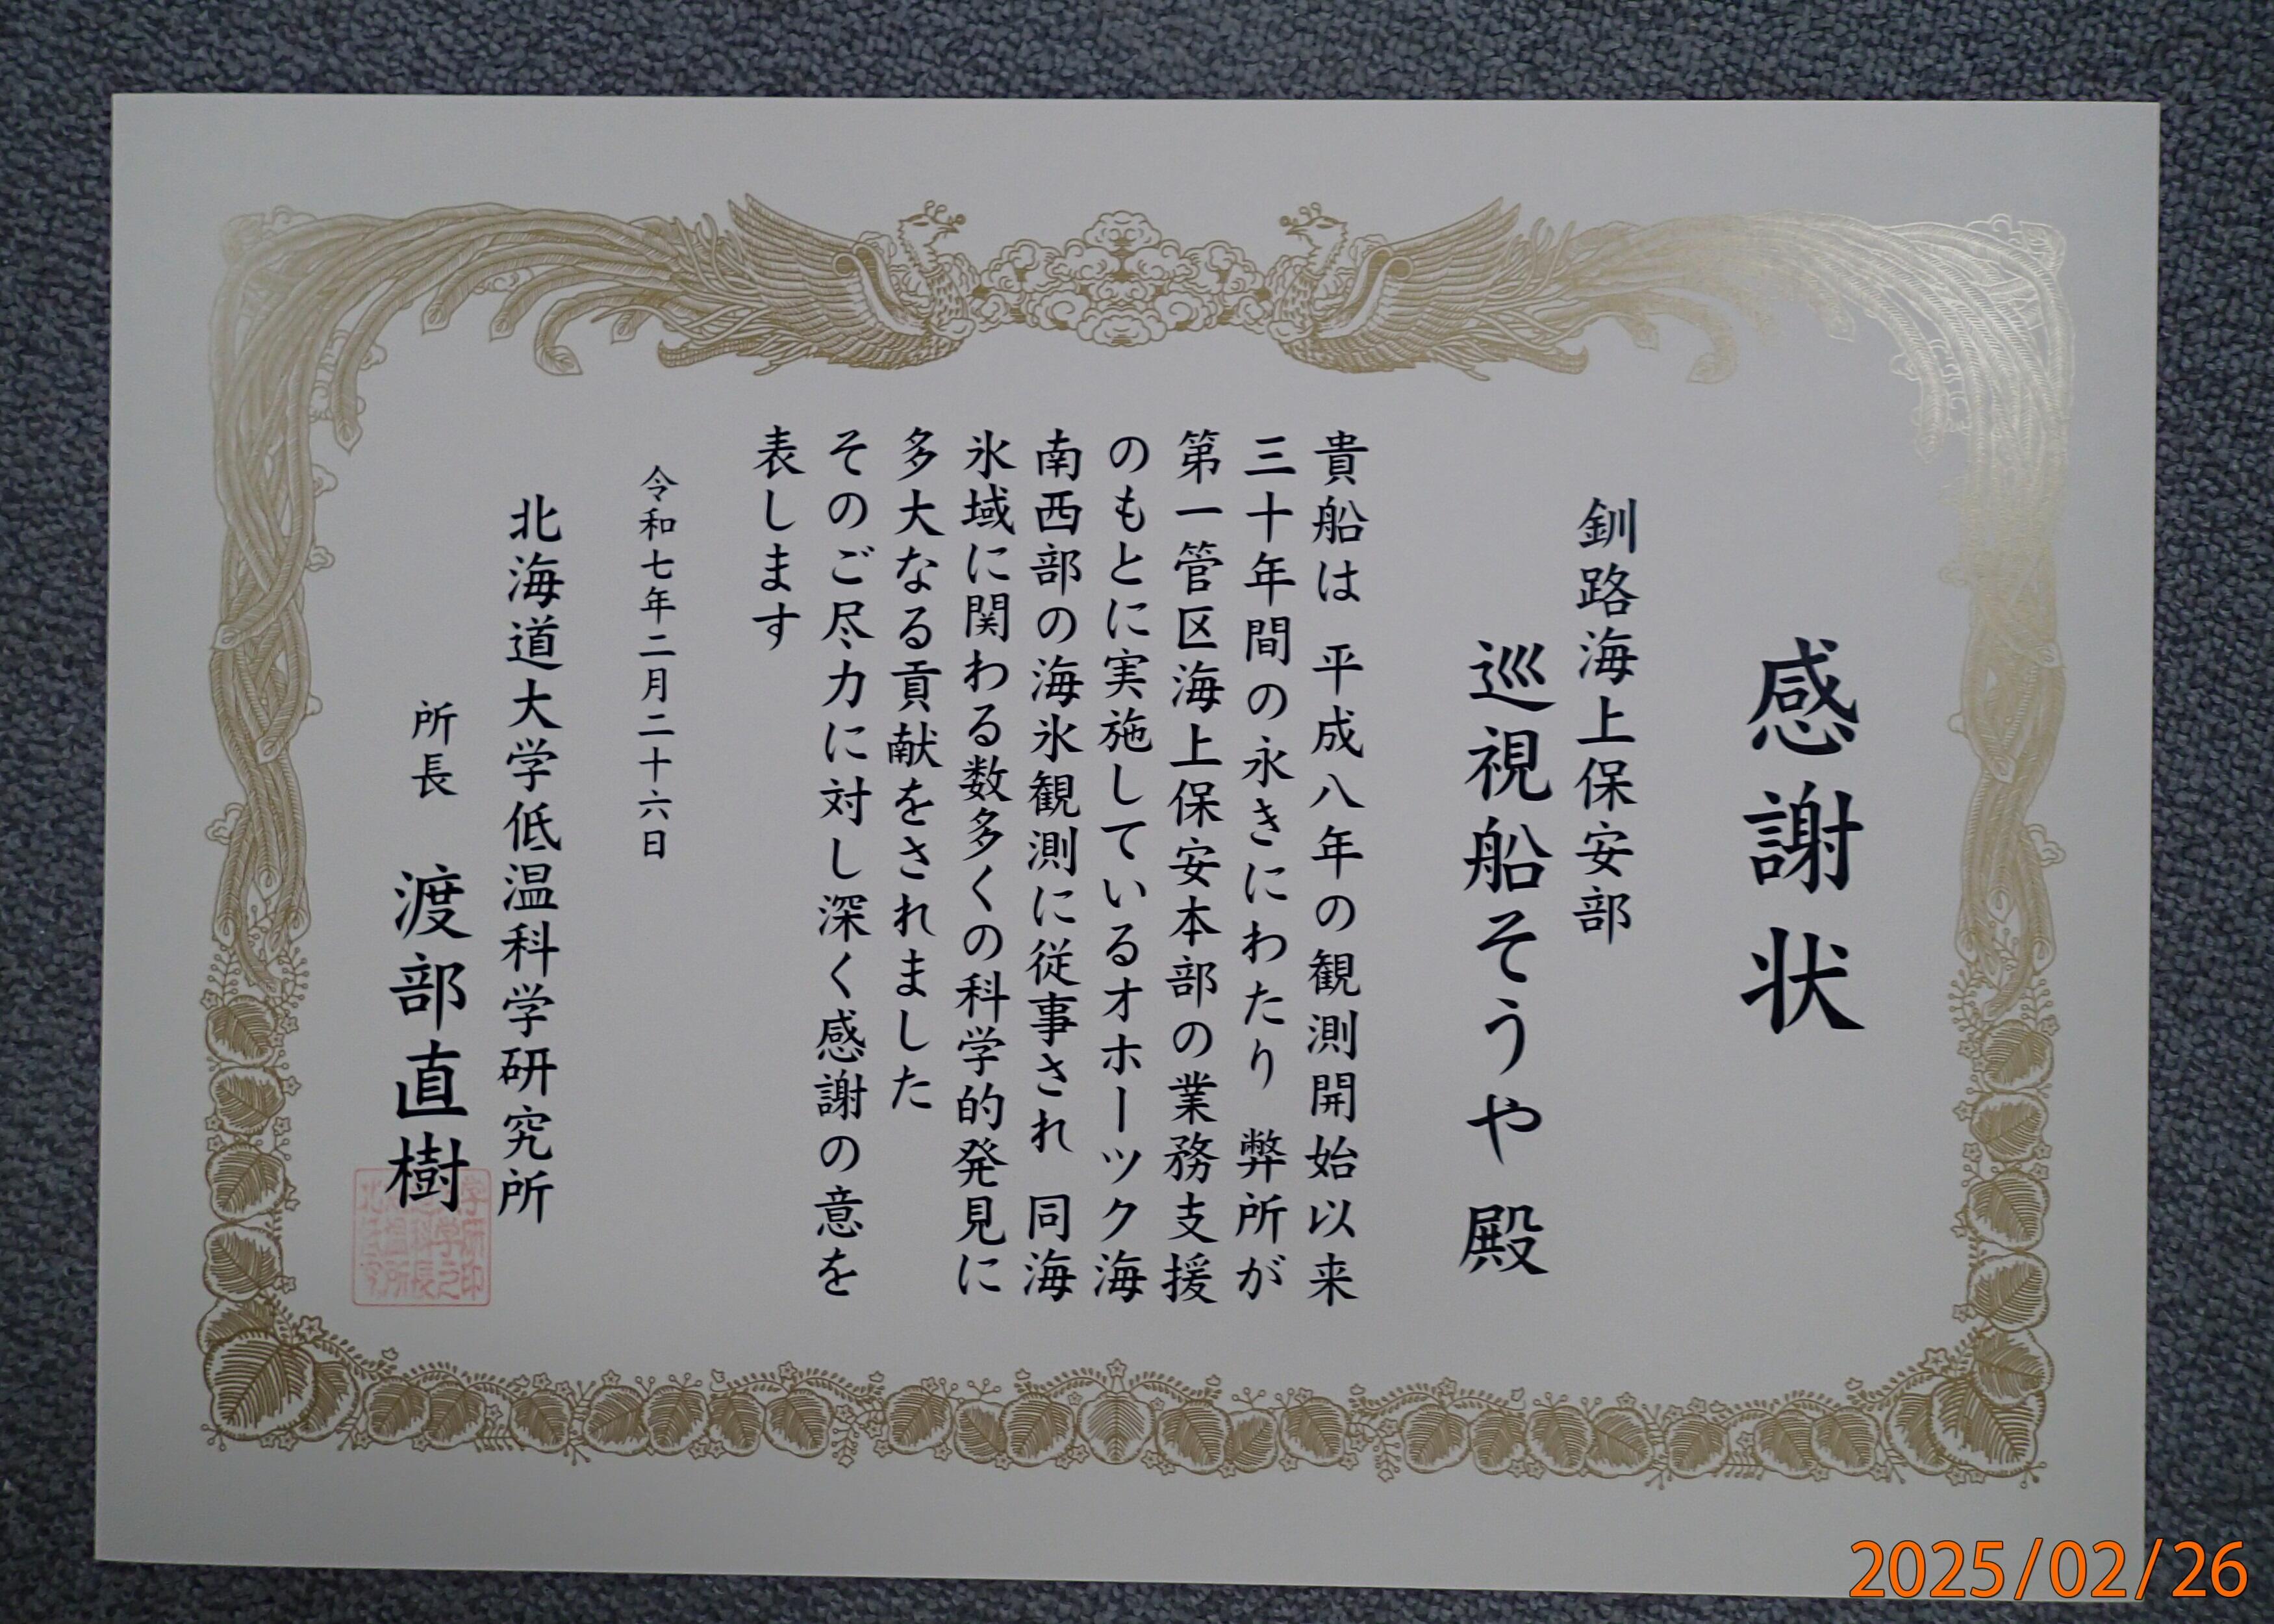 感謝状
釧路海上保安部
巡視船そうや 殿
貴船は 平成八年の観測開始以来
三十年間の永きにわたり 弊所が
第一管区海上保安本部の業務支援
のもとに実施しているオホーツク海
南西部の海氷観測に従事され 同海
氷域に関わる数多くの科学的発見に
多大なる貢献をされました
そのご尽力に対し深く感謝の意を
表します
令和七年二月二十六日
北海道大学低温科学研究所
所長 渡部直樹
2025/02/26